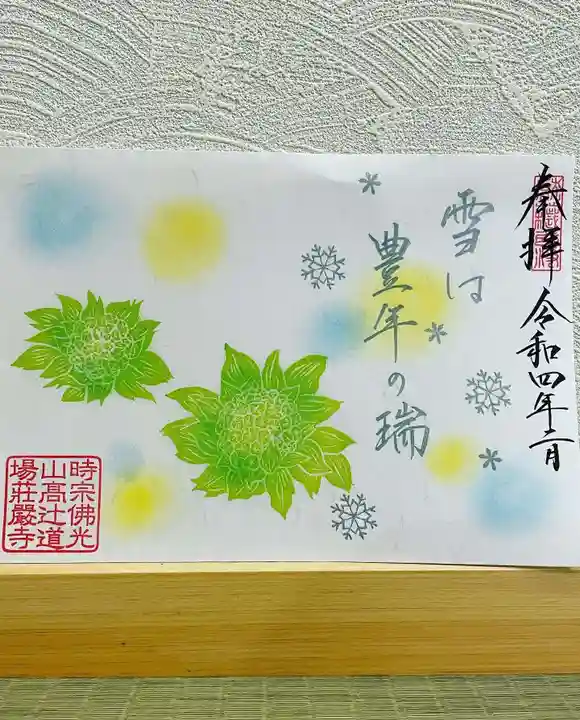 奉拝 令和四年二月
雪は
豊年の瑞
時宗佛光
山高辻道
場荘嚴寺